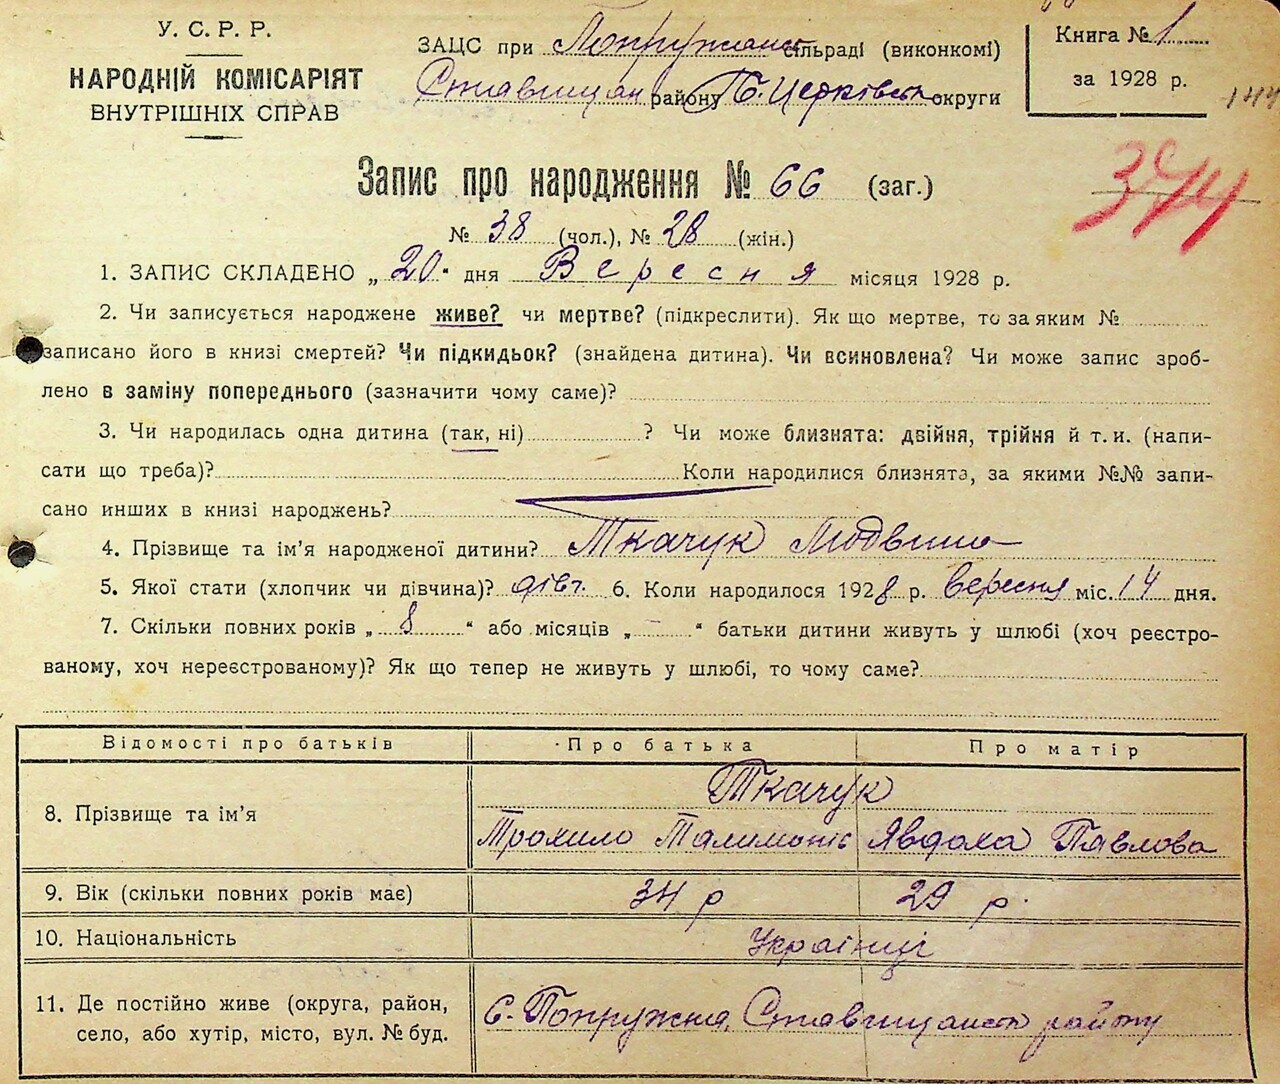 У. С. Р. Р.
НАРОДНІЙ КОМІСАРІЯТ
ВНУТРІШНІХ СПРАВ
ЗАЦС при Попружанс сільраді (виконкомі)
Ставищан району Б. Церківськ округи
Книга № 1
за 1928 р.
144
344
Запис про народження № 66 (заг.)
№ 38 (чол.), № 28 (жін.)
1. ЗАПИС СКЛАДЕНО „ 20 “ дня Вересня місяця 1928 р.
2. Чи записується народжене живе? чи мертве? (підкреслити). Як що мертве, то за яким №
записано його в книзі смертей? Чи підкидьок? (знайдена дитина). Чи всиновлена? Чи може запис зроб-
лено в заміну попереднього (зазначити чому саме)?
3. Чи народилась одна дитина (так, ні) ? Чи може близнята: двійня, трійня й т. и. (напи-
сати що треба)? Коли народилися близнята, за якими №№ запи-
сано инших в книзі народжень?
4. Прізвище та ім'я народженої дитини? Ткачук Людвина
5. Якої стати (хлопчик чи дівчина)? дівч. 6. Коли народилося 1928 р. вересня міс. 14 дня.
7. Скільки повних років „ 8 “ або місяців „ – “ батьки дитини живуть у шлюбі (хоч реєстро-
ваному, хоч нереєстрованому)? Як що тепер не живуть у шлюбі, то чому саме?
Відомості про батьків Про батька Про матір
8. Прізвище та ім'я Ткачук
Трохило Талимонів Явдоха Павлова
9. Вік (скільки повних років має) 34 р 29 р.
10. Національність Українці
11. Де постійно живе (округа, район,
село, або хутір, місто, вул. № буд.
с. Попружна Ставищанськ району